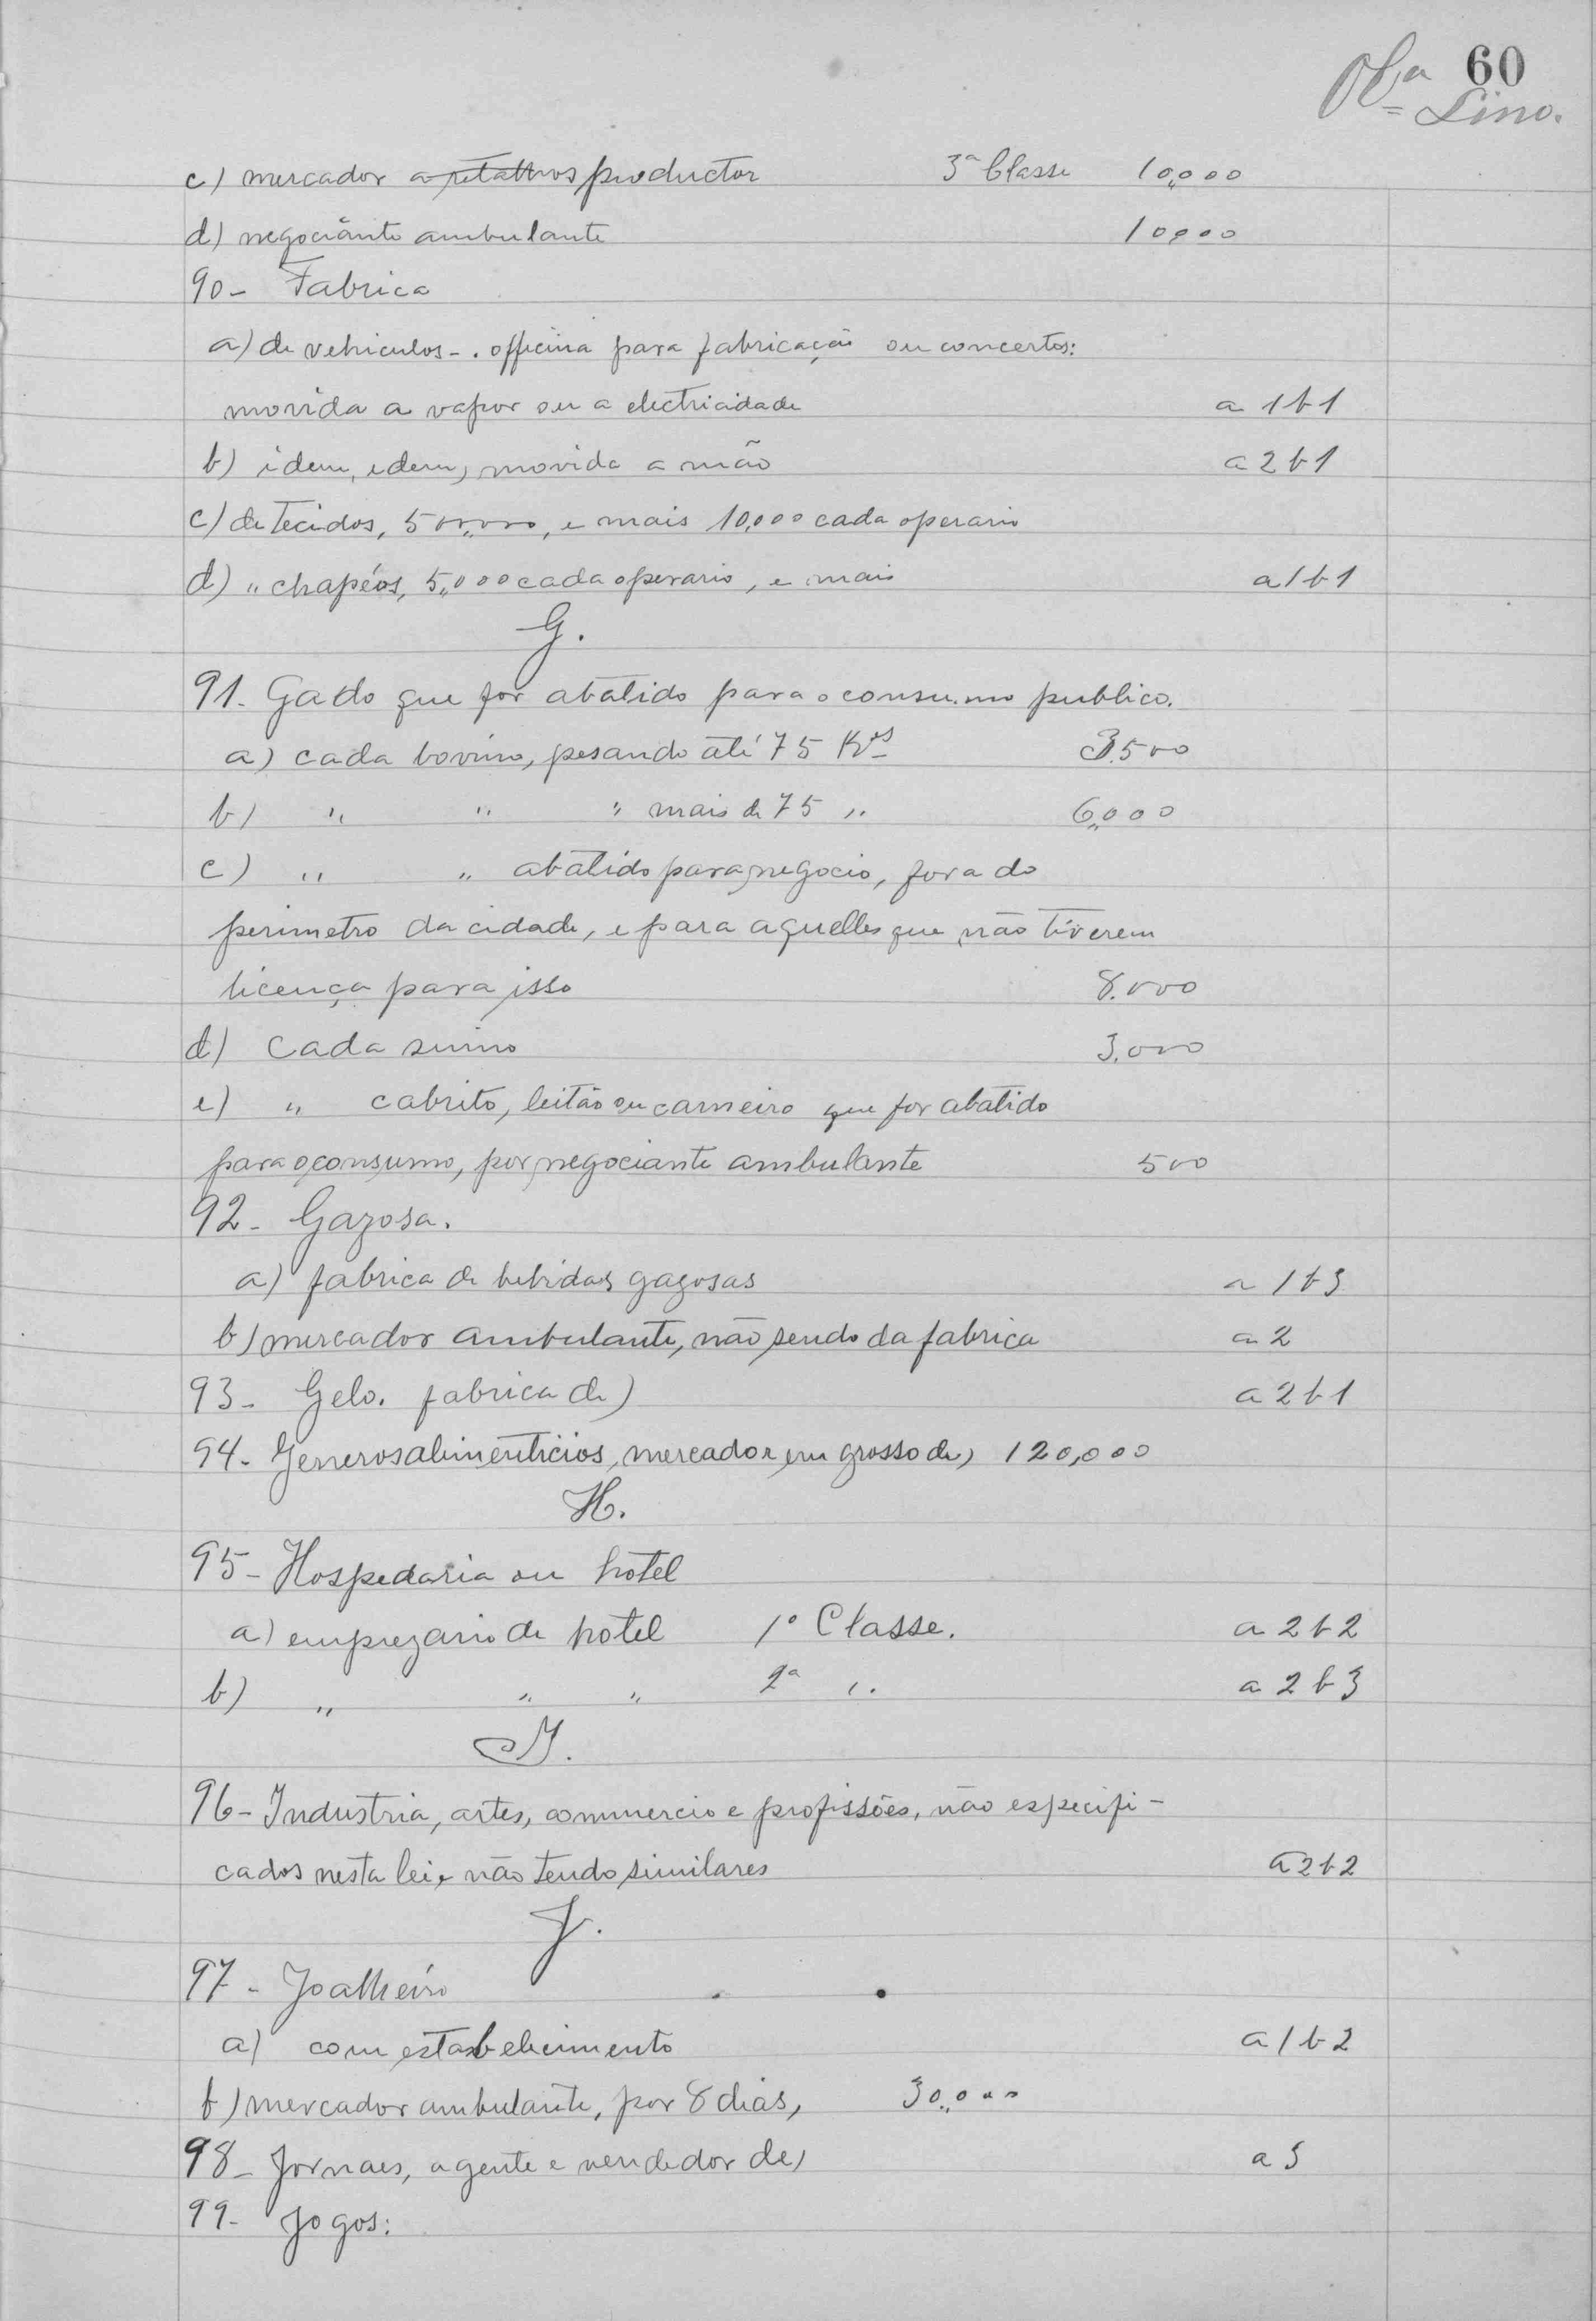 60
Lino.
c) mercador a retalhos productor 3ª Classe 10,000
d) negociante ambulante 10,000
90- Fabrica
a) de vehiculos-. officina para fabricação ou concertos:
movida a vapor ou a electricidade a 1 b 1
b) idem, idem, movida a mão a 2 b 1
c) de Tecidos, 500,000, e mais 10,000 cada operario
d) " chapéos, 5,000 cada operario, e mais a 1 b 1
G.
91- Gado que for abatido para o consumo publico.
a) cada bovino, pesando até 75 Kos 3.500
b) " " " mais de 75 " 6,000
c) " " abatido para negocio, fora do
perimetro da cidade, e para aquelles que não tiverem
licença para isso 8.000
d) Cada suino 3.000
e) " cabrito, leitão ou carneiro que for abatido
para o consumo, por negociante ambulante 500
92- Gazosa.
a) fabrica de bebidas gazosas a 1 b 3
b) mercador ambulante, não sendo da fabrica a 2
93- Gelo. fabrica de) a 2 b 1
94- Generos alimenticios, mercador em grosso de) 120,000
H.
95- Hospedaria ou hotel
a) emprezario de hotel 1º Classe. a 2 b 2
b) " " " 2ª " a 2 b 3
I.
96- Industria, artes, commercio e profissões, não especifi-
cados nesta lei e não tendo similares a 2 b 2
J.
97- Joalheiro
a) com estabelecimento a 1 b 2
b) mercador ambulante, por 8 dias, 30,000
98- Jornaes, agente e vendedor de) a 3
99- Jogos: